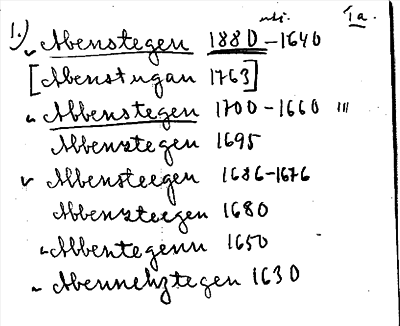 1a.
1.) Abenstegen 1880-1640
[Abenstugan 1763]
Abbenstegen 1700-1660 III
Abbenztegen 1695
Abbensteegen 1686-1676
Abbenzteegen 1680
Abbentegenn 1650
Abennehztegen 1630